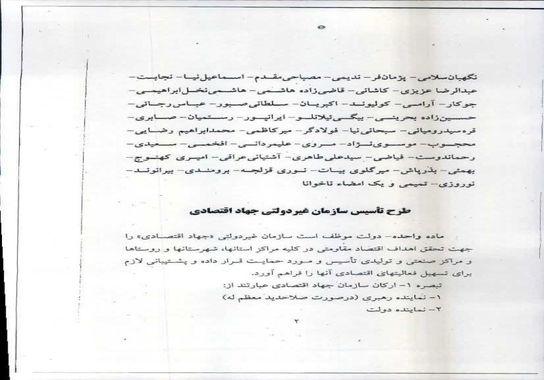 نگهبان‌سلامی– پژمان‌فر– ندیمی– مصباحی‌مقدم– اسماعیل‌نیا– نجابت–
عبدالرضا عزیزی– کاشانی– قاضی‌زاده هاشمی– هاشمی‌نخل‌ابراهیمی–
جوکار– آرامی– کولیوند– اکبریان– سلطانی‌صبور– عباس‌رجائی–
حسین‌زاده بحرینی– بیگی‌ئیلانلو– ایرانپور– رستمیان– صابری–
قره‌سیدرومیانی– سبحانی‌نیا– فولادگر– میرکاظمی– محمدابراهیم رضایی–
محجوب– موسوی‌نژاد– مروی– علیمردانی– افخمی– سعیدی–
رحماندوست– فیاضی– سیدعلی‌طاهری– آشتیانی‌عراقی– امیری کهنوج–
بهمئی– بذرپاش– میرگلوی بیات– نوری قزلجه– برومندی– بیرانوند–
نوروزی– تمیمی و یک امضاء ناخوانا
طرح تأسیس سازمان غیردولتی جهاد اقتصادی
ماده واحده– دولت موظف است سازمان غیردولتی «جهاد اقتصادی» را
جهت تحقق اهداف اقتصاد مقاومتی در کلیه مراکز استانها، شهرستانها و روستاها
و مراکز صنعتی و تولیدی تأسیس و مورد حمایت قرار داده و پشتیبانی لازم
برای تسهیل فعالیتهای اقتصادی آنها را فراهم آورد.
تبصره ۱– ارکان سازمان جهاد اقتصادی عبارتند از:
۱– نماینده رهبری (درصورت صلاحدید معظم له)
۲– نماینده دولت
۲